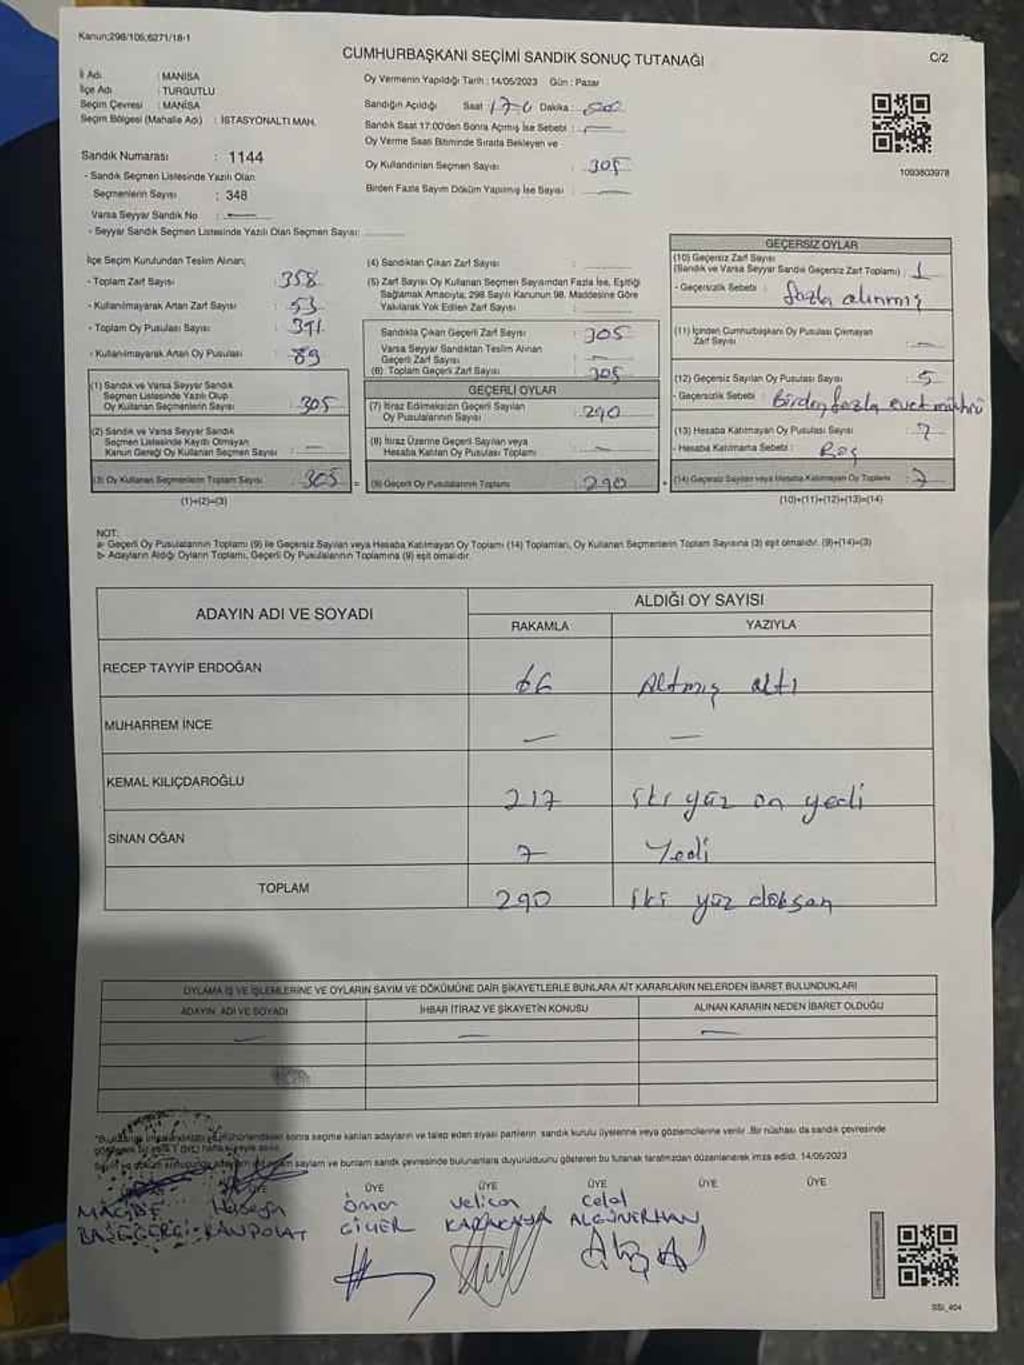 Kanun;298/105;6271/18-1
CUMHURBAŞKANI SEÇİMİ SANDIK SONUÇ TUTANAĞI
C/2
İl Adı : MANİSA
İlçe Adı : TURGUTLU
Seçim Çevresi : MANİSA
Seçim Bölgesi (Mahalle Adı) : İSTASYONALTI MAH.
Sandık Numarası : 1144
- Sandık Seçmen Listesinde Yazılı Olan
Seçmenlerin Sayısı : 348
Varsa Seyyar Sandık No :
- Seyyar Sandık Seçmen Listesinde Yazılı Olan Seçmen Sayısı:
Oy Vermenin Yapıldığı Tarih : 14/05/2023 Gün : Pazar
Sandığın Açıldığı Saat Dakika :
Sandık Saat 17:00'den Sonra Açılmış İse Sebebi :
Oy Verme Saati Bitiminde Sırada Bekleyen ve
Oy Kullandırılan Seçmen Sayısı : 305
Birden Fazla Sayım Döküm Yapılmış İse Sayısı :
1093803978
İlçe Seçim Kurulundan Teslim Alınan;
- Toplam Zarf Sayısı : 358
- Kullanılmayarak Artan Zarf Sayısı : 53
- Toplam Oy Pusulası Sayısı : 391
- Kullanılmayarak Artan Oy Pusulası : 89
(1) Sandık ve Varsa Seyyar Sandık
Seçmen Listesinde Yazılı Olup
Oy Kullanan Seçmenlerin Sayısı : 305
(2) Sandık ve Varsa Seyyar Sandık
Seçmen Listesinde Kaydı Olmayan
Kanun Gereği Oy Kullanan Seçmen Sayısı :
(3) Oy Kullanan Seçmenlerin Toplam Sayısı : 305
(1)+(2)=(3)
(4) Sandıktan Çıkan Zarf Sayısı :
(5) Zarf Sayısı Oy Kullanan Seçmen Sayısından Fazla İse, Eşitliği
Sağlamak Amacıyla; 298 Sayılı Kanunun 98. Maddesine Göre
Yakılarak Yok Edilen Zarf Sayısı :
Sandıkta Çıkan Geçerli Zarf Sayısı : 305
Varsa Seyyar Sandıktan Teslim Alınan
Geçerli Zarf Sayısı :
(6) Toplam Geçerli Zarf Sayısı : 305
GEÇERLİ OYLAR
(7) İtiraz Edilmeksizin Geçerli Sayılan
Oy Pusulalarının Sayısı : 290
(8) İtiraz Üzerine Geçerli Sayılan veya
Hesaba Katılan Oy Pusulası Toplamı :
(9) Geçerli Oy Pusulalarının Toplamı : 290
GEÇERSİZ OYLAR
(10) Geçersiz Zarf Sayısı
(Sandık ve Varsa Seyyar Sandık Geçersiz Zarf Toplamı) : 1
- Geçersizlik Sebebi : fazla alınmış
(11) İçinden Cumhurbaşkanı Oy Pusulası Çıkmayan
Zarf Sayısı :
(12) Geçersiz Sayılan Oy Pusulası Sayısı : 5
- Geçersizlik Sebebi : Birden fazla evet mührü
(13) Hesaba Katılmayan Oy Pusulası Sayısı : 7
- Hesaba Katılmama Sebebi : Boş
(14) Geçersiz Sayılan veya Hesaba Katılmayan Oy Toplamı : 7
(10)+(11)+(12)+(13)=(14)
NOT:
a- Geçerli Oy Pusulalarının Toplamı (9) ile Geçersiz Sayılan veya Hesaba Katılmayan Oy Toplamı (14) Toplamları, Oy Kullanan Seçmenlerin Toplam Sayısına (3) eşit olmalıdır. (9)+(14)=(3)
b- Adayların Aldığı Oyların Toplamı, Geçerli Oy Pusulalarının Toplamına (9) eşit olmalıdır.
ADAYIN ADI VE SOYADI
ALDIĞI OY SAYISI
RAKAMLA YAZIYLA
RECEP TAYYİP ERDOĞAN 66 Altmış altı
MUHARREM İNCE
KEMAL KILIÇDAROĞLU 217 iki yüz on yedi
SİNAN OĞAN 7 Yedi
TOPLAM 290 iki yüz doksan
OYLAMA İŞ VE İŞLEMLERİNE VE OYLARIN SAYIM VE DÖKÜMÜNE DAİR ŞİKAYETLERLE BUNLARA AİT KARARLARIN NELERDEN İBARET BULUNDUKLARI
ADAYIN ADI VE SOYADI İHBAR İTİRAZ VE ŞİKAYETİN KONUSU ALINAN KARARIN NEDEN İBARET OLDUĞU
sonra seçime katılan adayların ve talep eden siyasi partilerin sandık kurulu üyelerine veya gözlemcilerine verilir. Bir nüshası da sandık çevresinde
sayılarını ve bunların sandık çevresinde bulunanlara duyurulduğunu gösteren bu tutanak tarafımızdan düzenlenerek imza edildi. 14/05/2023
ÜYE ÜYE ÜYE ÜYE ÜYE ÜYE
MACİDE Hüseyin Ömer Velican Celal
BAŞEĞERGİ KANPOLAT GİYER KARAKAYA ALGÜNERHAN
SSİ_404